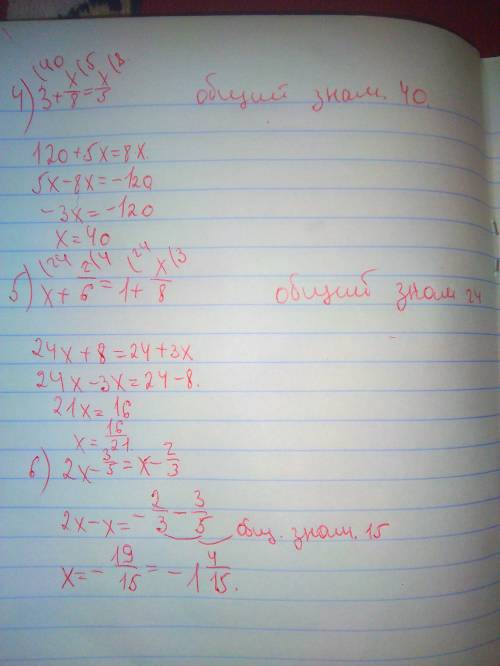 4) 3 + x/8 = x/5 (40 (5 (8 общий знам. 40.
120+5x=8x.
5x-8x=-120
-3x=-120
x=40
5) x + 2/6 = 1 + x/8 (24 (4 (24 (3 общий знам 24
24x+8=24+3x
24x-3x=24-8.
21x=16
x=16/21.
6) 2x - 3/5 = x - 2/3
2x-x= - 2/3 - 3/5 общ. знам. 15
x= - 19/15 = -1 4/15.